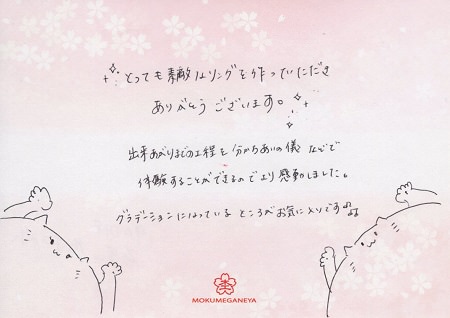 とっても素敵なリングを作っていただき
ありがとうございます。
出来あがりまでの工程を分かちあいの儀などで
体験することができるのでより感動しました。
グラデーションになっているところがお気に入りです
MOKUMEGANEYA